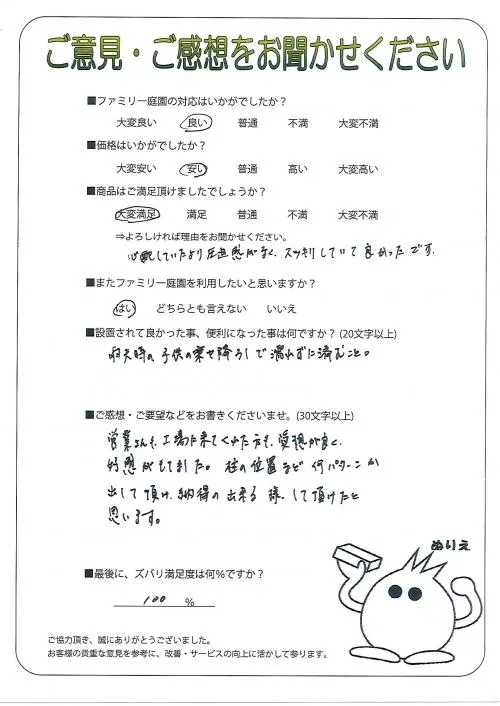 ご意見・ご感想をお聞かせください
■ファミリー庭園の対応はいかがでしたか？
大変良い 良い 普通 不満 大変不満
■価格はいかがでしたか？
大変安い 安い 普通 高い 大変高い
■商品はご満足頂けましたでしょうか？
大変満足 満足 普通 不満 大変不満
⇒よろしければ理由をお聞かせください。
心配していたより圧迫感がなく、スッキリしていて良かったです。
■またファミリー庭園を利用したいと思いますか？
はい どちらとも言えない いいえ
■設置されて良かった事、便利になった事は何ですか？(20文字以上)
雨天時の子供の乗せ降ろしで濡れずに済むこと。
■ご感想・ご要望などをお書きくださいませ。(30文字以上)
営業さんも、工場に来てくれた方も、愛想が良く、
好感がもてました。柱の位置など何パターンか
出して頂け、納得の出来る様、して頂けたと
思います。
ぬりえ
■最後に、ズバリ満足度は何％ですか？
100 ％
ご協力頂き、誠にありがとうございました。
お客様の貴重な意見を参考に、改善・サービスの向上に活かして参ります。